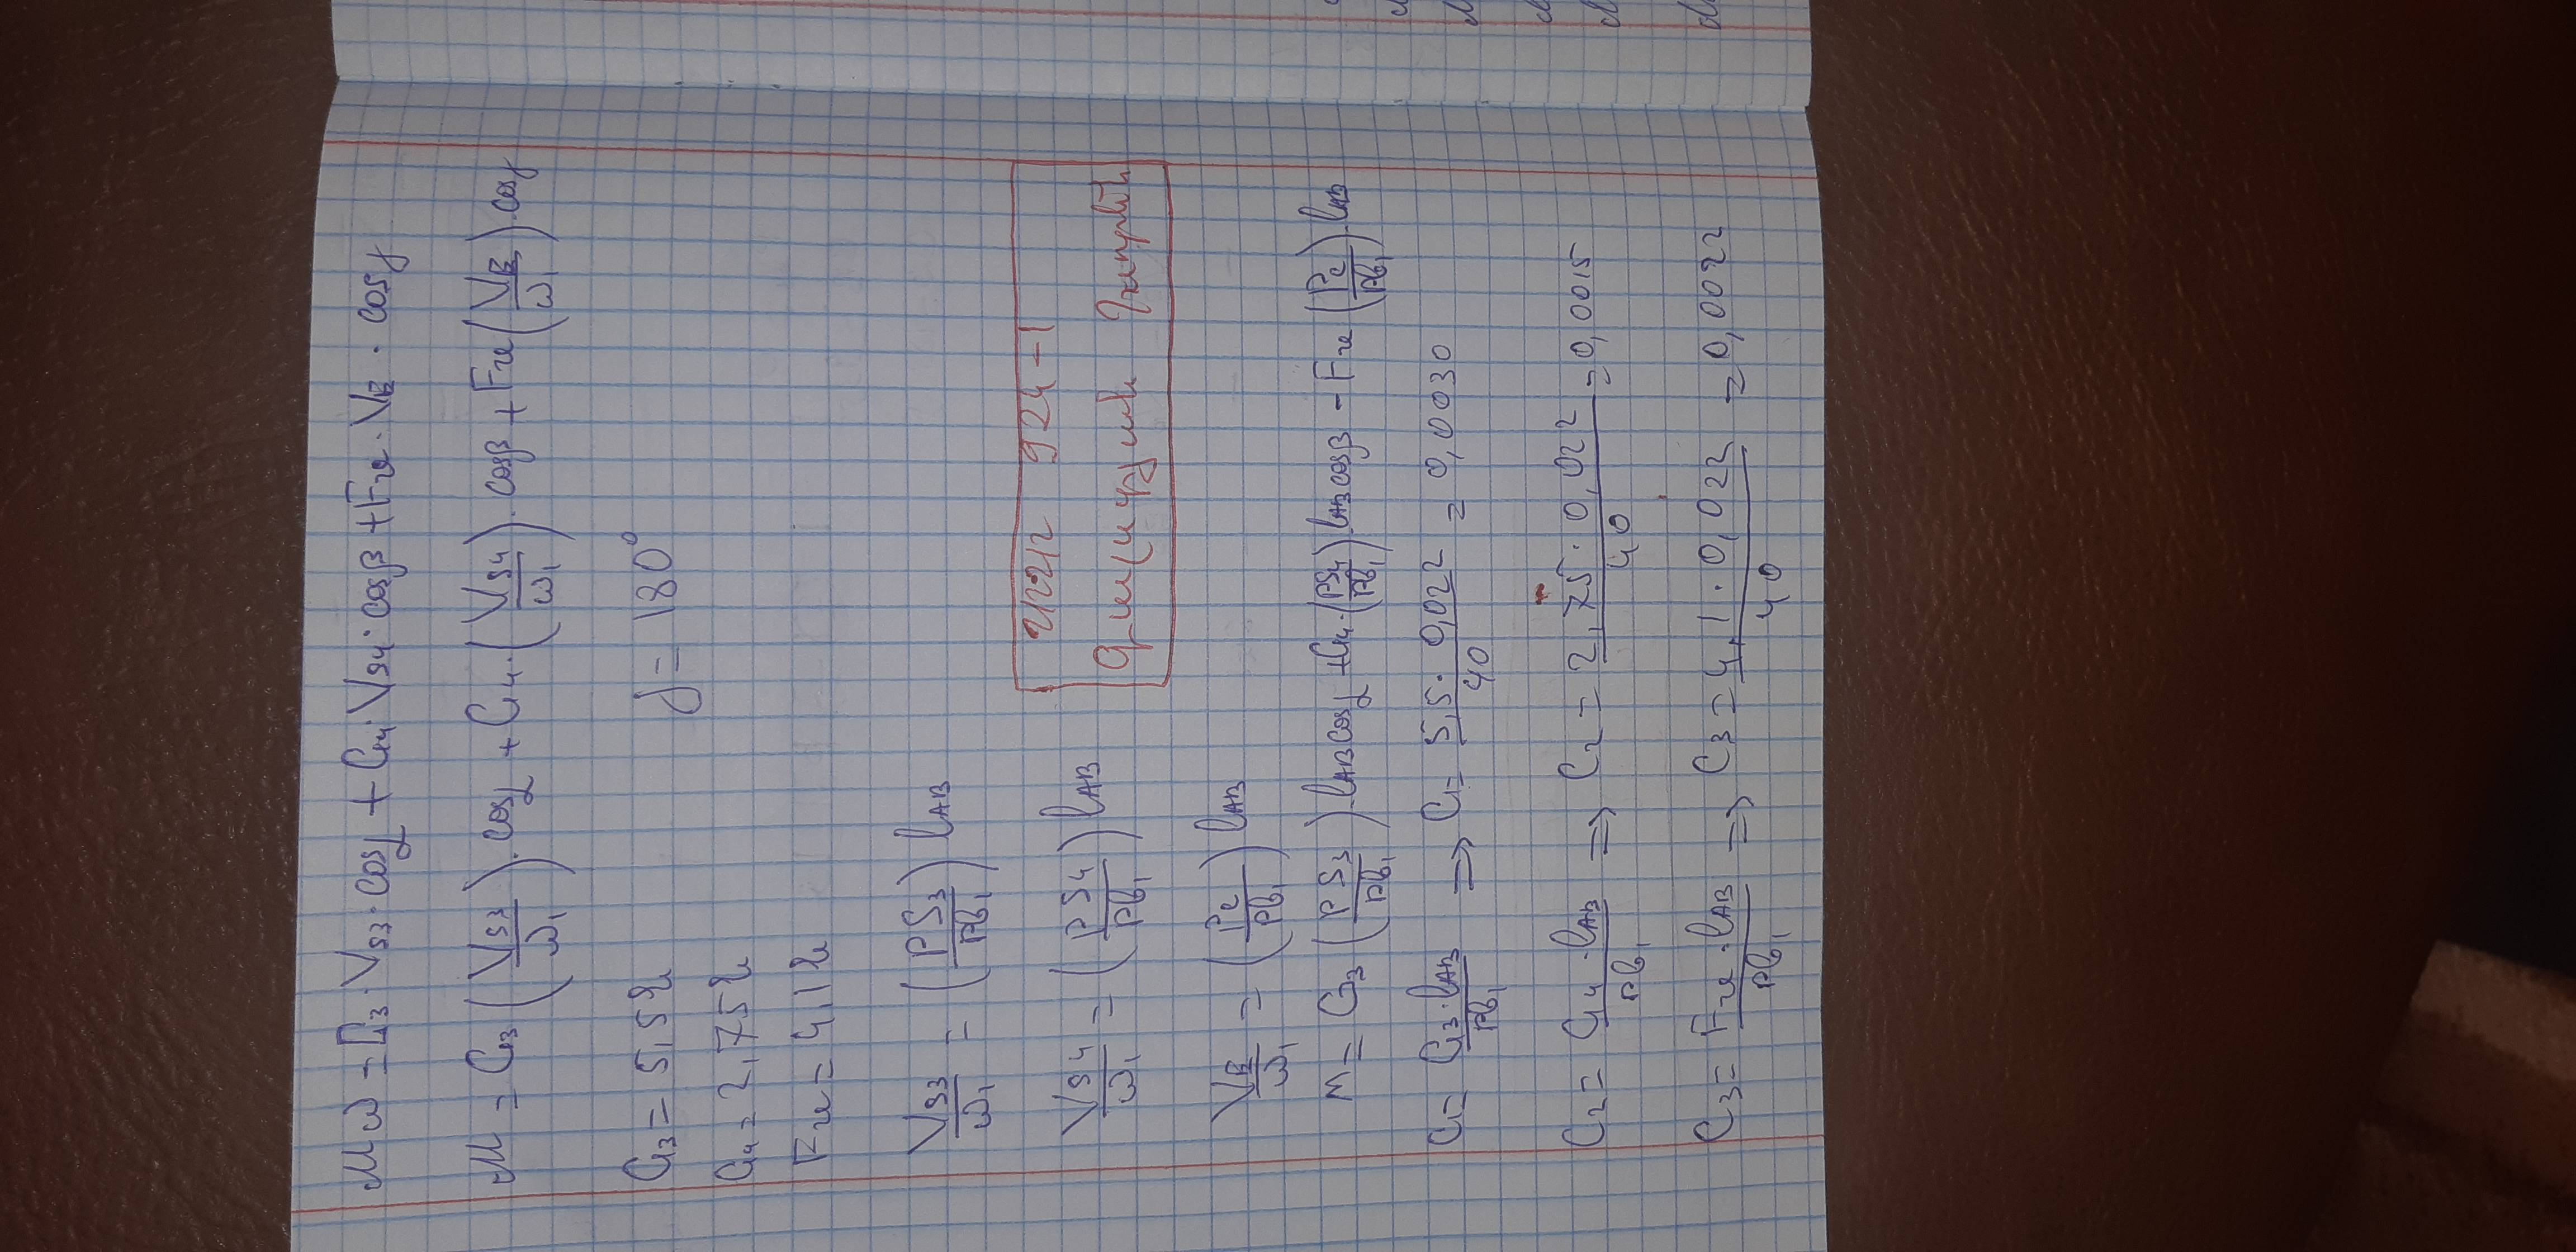 Mω = G₃·V_S3·cosα + G₄·V_S4·cosβ + Fշ·V_E·cosγ
M = G₃(V_S3/ω₁)·cosα + G₄·(V_S4/ω₁)·cosβ + Fշ(V_E/ω₁)·cosγ
G₃ = 5,5Ն γ = 180°
G₄ = 2,75Ն
Fշ = 4,1Ն
V_S3/ω₁ = (PS₃/Pb₁) l_AB
V_S4/ω₁ = (PS₄/Pb₁) l_AB
924-1
V_E/ω₁ = (Pe/Pb₁) l_AB
M = G₃(PS₃/Pb₁)·l_AB cosα + G₄·(PS₄/Pb₁)·l_AB cosβ − Fշ(Pe/Pb₁)·l_AB
C₁ = G₃·l_AB/Pb₁ ⇒ C₁ = 5,5·0,022/40 = 0,0030
C₂ = G₄·l_AB/Pb₁ ⇒ C₂ = 2,75·0,022/40 = 0,0015
C₃ = Fշ·l_AB/Pb₁ ⇒ C₃ = 4,1·0,022/40 = 0,0022